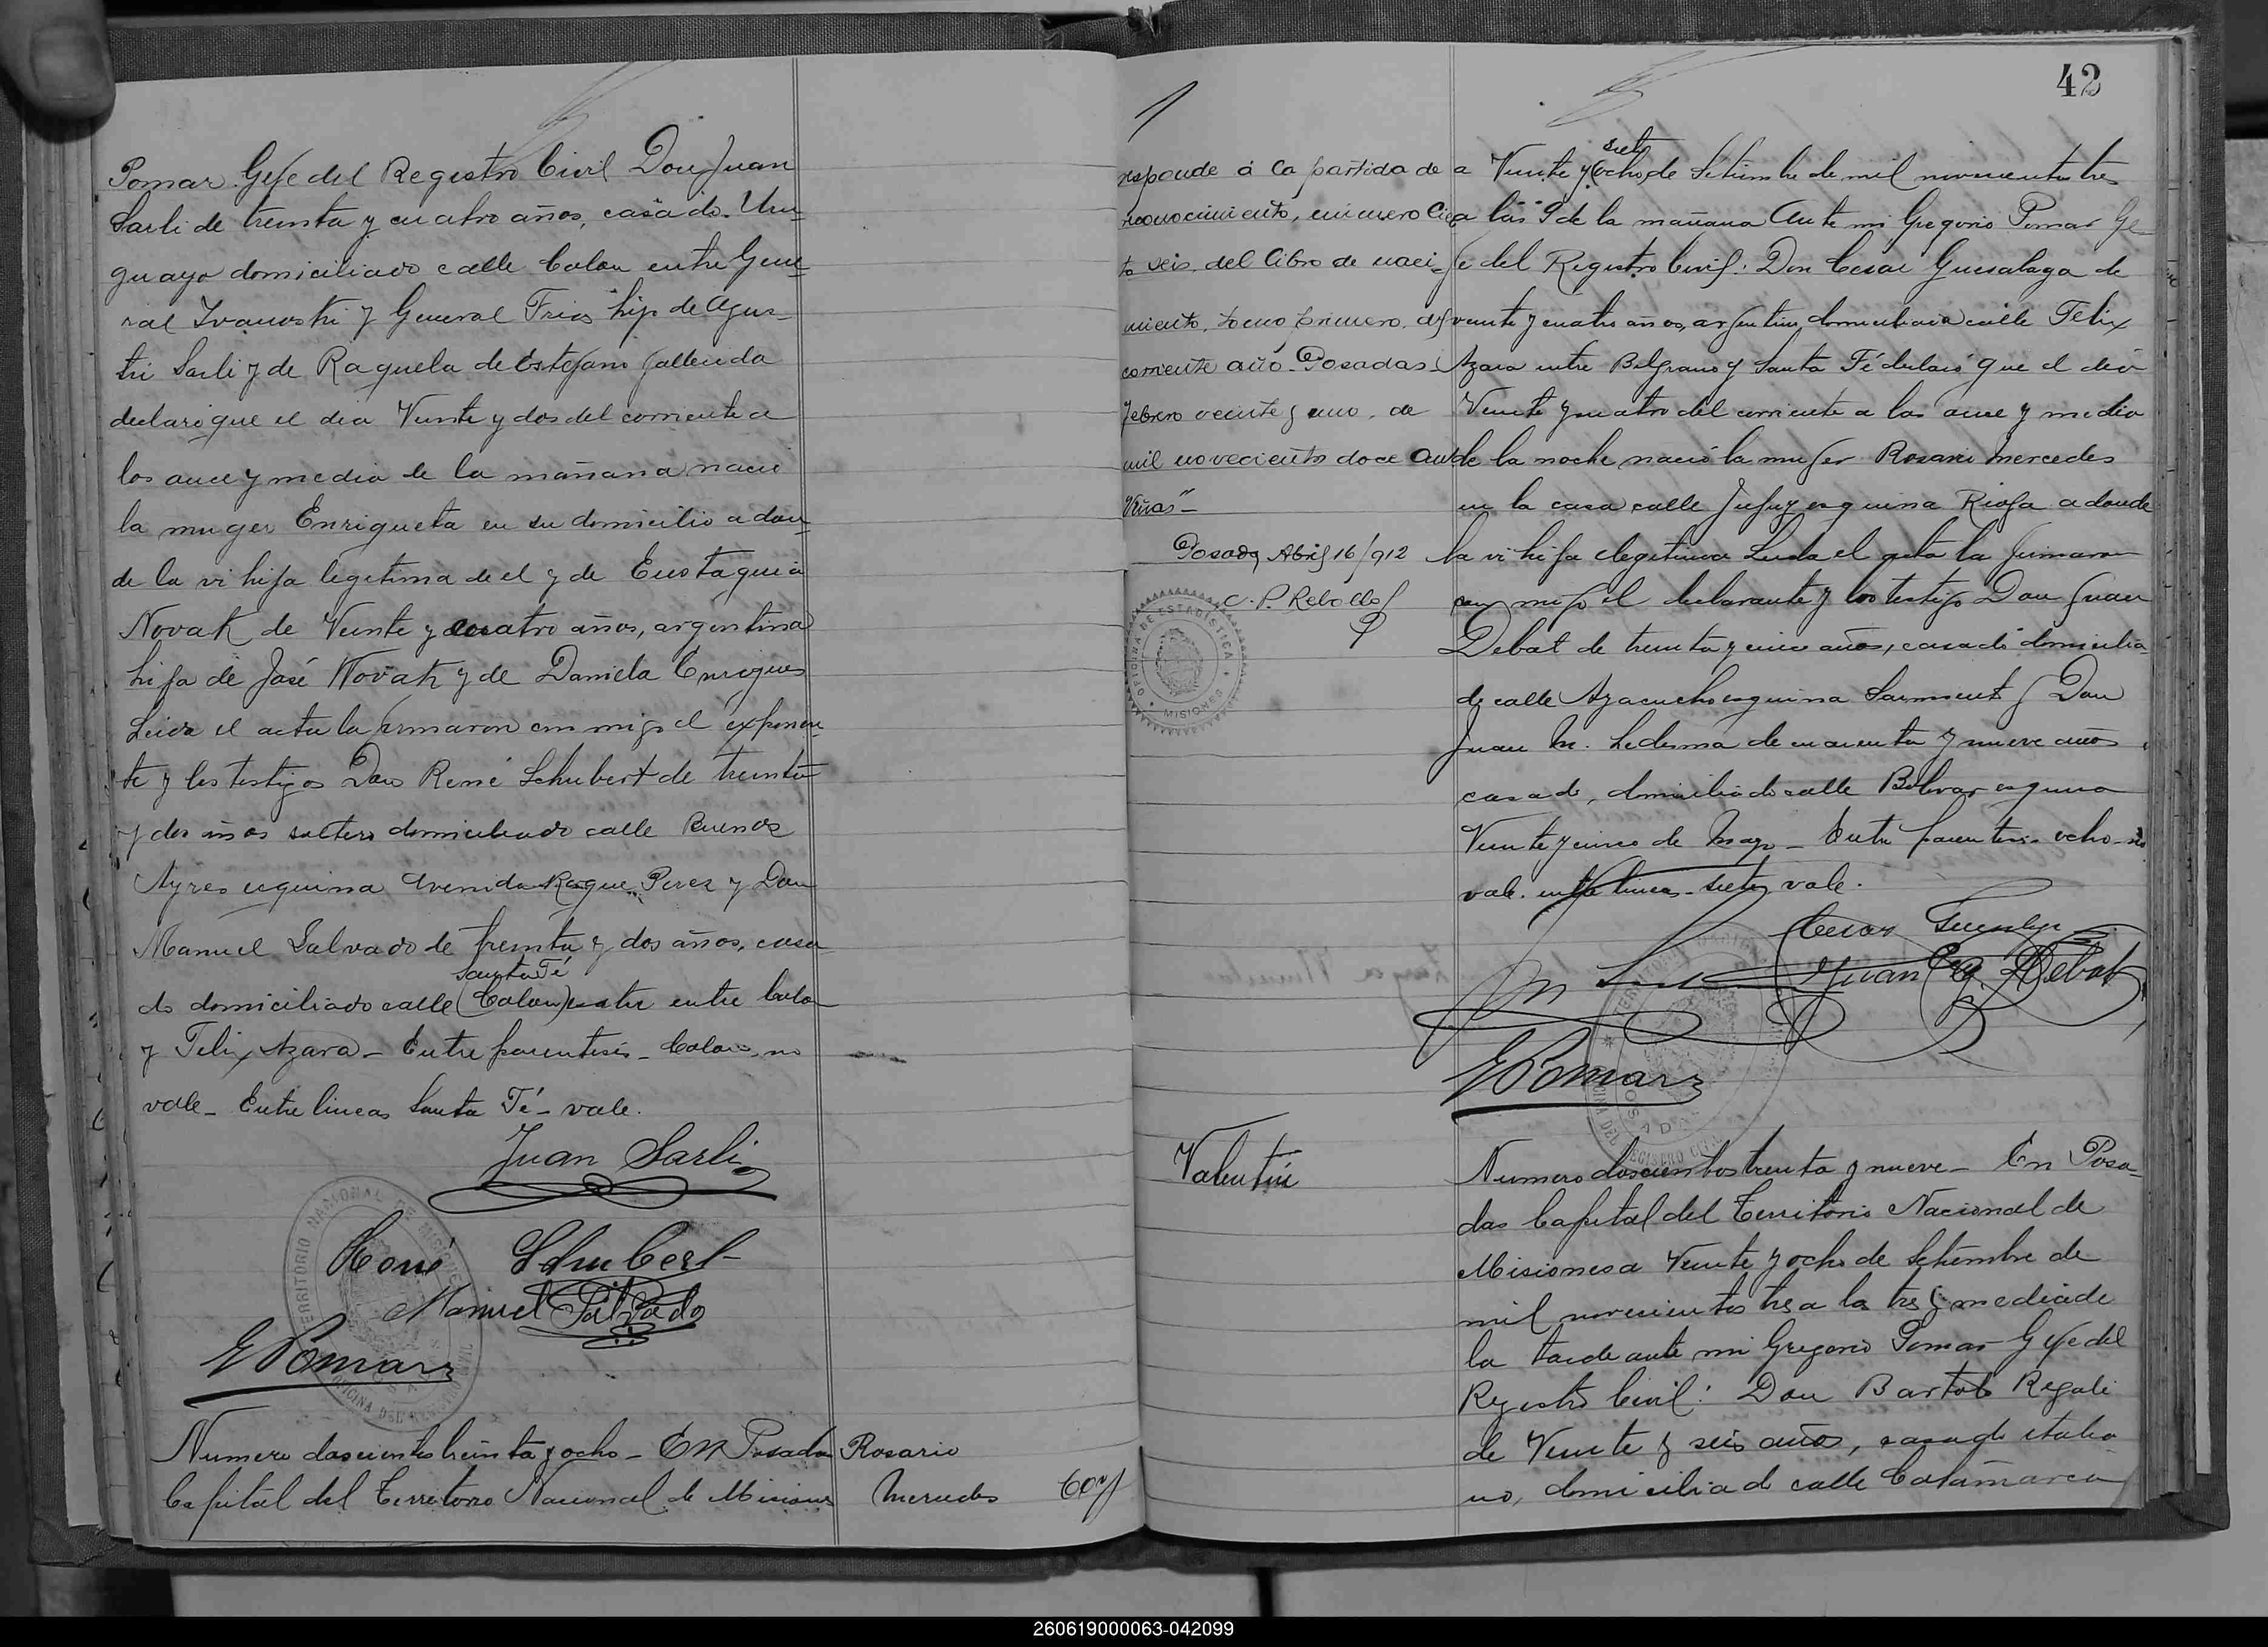 Pomar Gefe del Registro Civil Don Juan
Sarli de treinta y cuatro años, casado. Uru-
guayo domiciliado calle Colon entre Gene-
ral Ivanoski y General Frias hijo de Agus-
tin Sarli y de Raquela de Estefano fallecida
declaró que el dia Veinte y dos del corriente a
las once y media de la mañana nació
la muger Enriqueta en su domicilio a don-
de la vi hija legitima de el y de Eustaquia
Novak de Veinte y cuatro años, argentina
hija de José Novak y de Daniela Enriques
Leida el acta la firmaron conmigo el exponen-
te y los testigos Don René Schubert de treinta
y dos años soltero domiciliado calle Buenos
Ayres esquina Avenida Roque Perez y Don
Manuel Salvado de treinta y dos años, casa-
Santa Fé
do domiciliado calle (Colon) entre Colon
y Felix Azara - Entre parentesis - Colon, no
vale - Entre lineas Santa Fé - vale.
Juan Sarli
René Schubert
Manuel Salvado
G Pomar
Numero doscientos treinta y ocho - En Posadas
Capital del Territorio Nacional de Misiones
Rosario
Mercedes
42
responde á la partida de
reconocimiento, número Cien-
to seis, del libro de naci-
miento, tomo primero, del
corriente año - Posadas,
febrero veinte y uno, de
mil novecientos doce
Posadas Abril 16/912
C. P. Rebollo
OFICINA DE ESTADISTICA
MISIONES
siete
a Veinte y (ocho) de Setiembre de mil novecientos tres
a las 9 de la mañana Ante mi Gregorio Pomar Ge-
fe del Registro Civil: Don Cesar Guesalaga de
veinte y cuatro años, argentino, domiciliado calle Felix
Azara entre Belgrano y Santa Fé declaró que el dia
Veinte y cuatro del corriente a las once y media
de la noche nació la muger Rosario Mercedes
en la casa calle Jujuy esquina Rioja a donde
la vi hija ilegitima Leida el acta la firmaron
conmigo el declarante y los testigos Don Juan
Debat de treinta y cinco años, casado domicilia-
do calle Ayacucho esquina Sarmiento y Don
Juan M. Ledesma de cuarenta y nueve años
casado, domiciliado calle Bolivar esquina
Veinte y cinco de Mayo - Entre parentesis - ocho - no
vale. entre lineas - siete, vale.
Cesar Guesalaga
Juan G. Debat
G Pomar
Valentin
Numero doscientos treinta y nueve - En Posa-
das Capital del Territorio Nacional de
Misiones a Veinte y ocho de Setiembre de
mil novecientos tres a las tres y media de
la tarde ante mi Gregorio Pomar Gefe del
Registro Civil: Don Bartolo Regali
de Veinte y seis años, casado italia-
no, domiciliado calle Catamarca
260619000063-042099